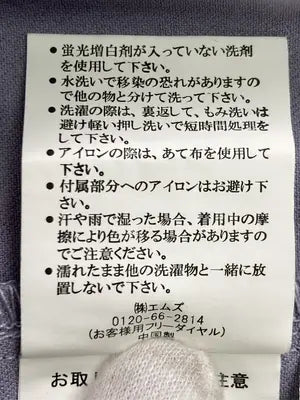 ●蛍光増白剤が入っていない洗剤
を使用して下さい。
●水洗いで移染の恐れがありますの
で他の物と分けて洗って下さい。
●洗濯の際は、裏返して、もみ洗いは
避け軽い押し洗いで短時間処理を
して下さい。
●アイロンの際は、あて布を使用して
下さい。
●付属部分へのアイロンはお避け下
さい。
●汗や雨で湿った場合、着用中の摩
擦により色が移る場合がありますの
でご注意ください。
●濡れたまま他の洗濯物と一緒に放
置しないで下さい。
㈱エムズ
0120-66-2814
(お客様用フリーダイヤル)
中国製
お取 注意